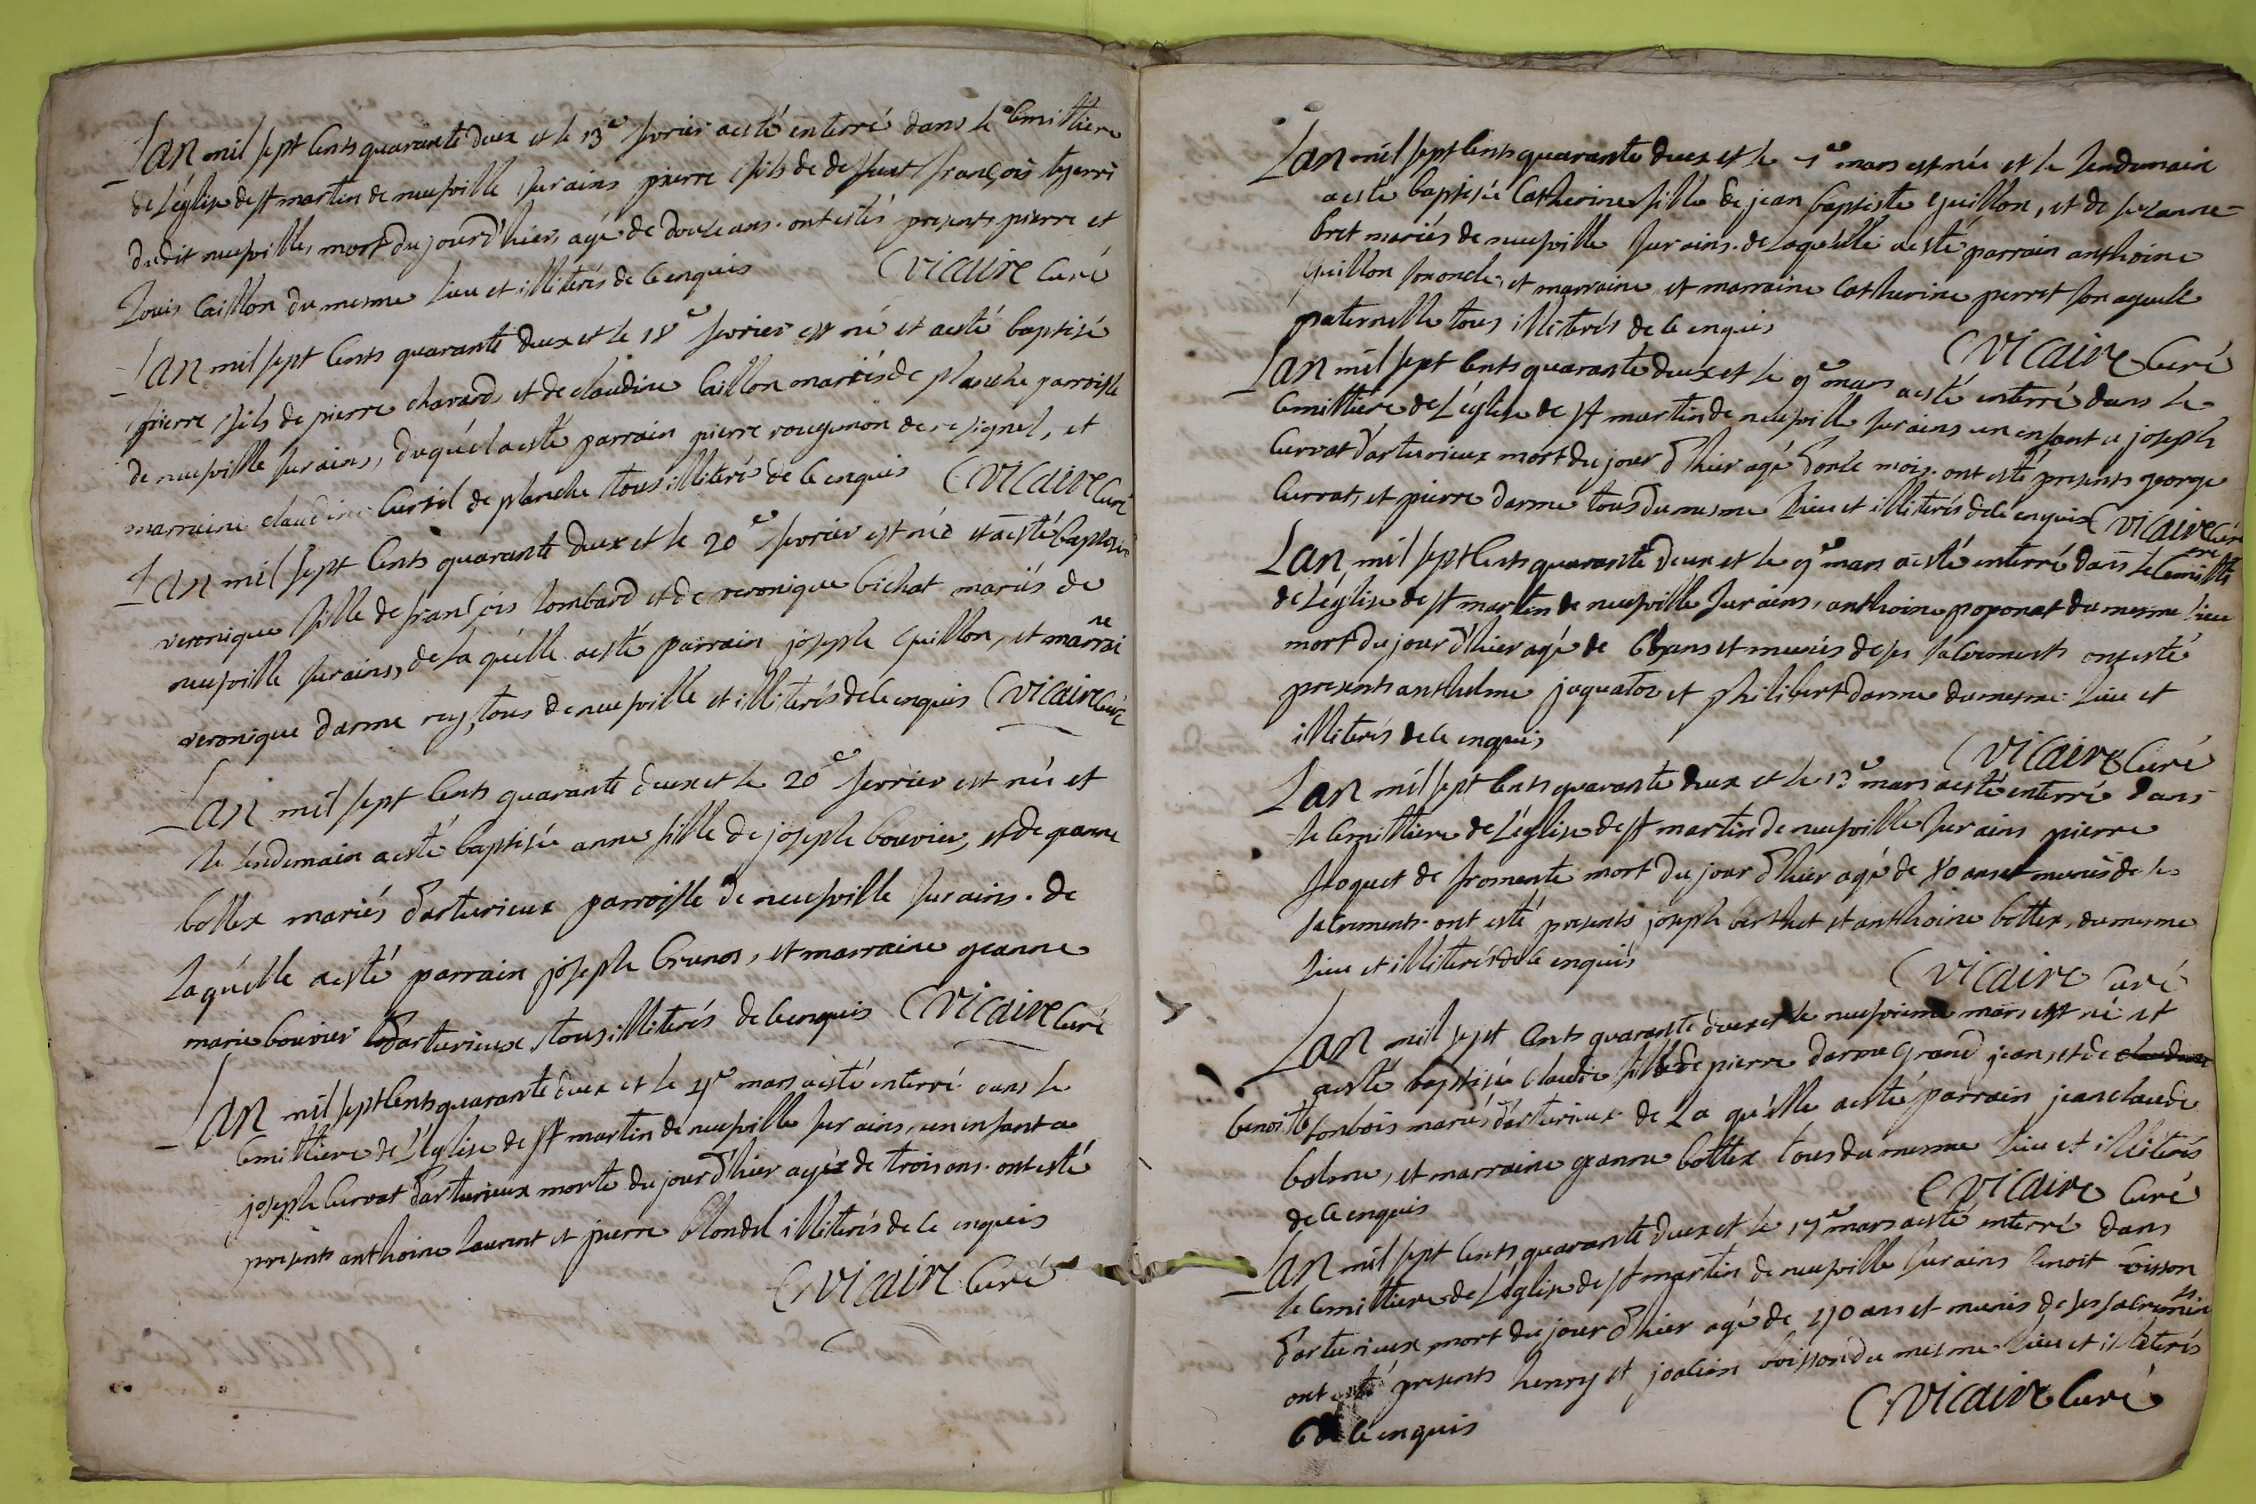 Lan mil sept cents quarante deux et le 13e fevrier a esté enterré dans le cemittiere
de L'église de st martin de neufville sur ains pierre fils de deffunt françois
dudit neufville, mort du jour d'hier, agé de douze ans. ont estés presents pierre et
Louis Caillon du mesme lieu et illiterés de ce enquis Vicaire Curé
Lan mil sept cents quarante deux et le 18e fevrier est né et a esté baptisé
pierre fils de pierre chavard et de claudine Caillon mariés de planche parroisse
de neufville sur ains, duquél a esté parrain pierre rougemon de resignel, et
marraine claudine Curtil de planche tous illiteré de ce enquis Vicaire Curé
Lan mil sept cents quarante deux et le 20e fevrier est née et a esté baptisée
veronique fille de françois Lombard et de veronique bichat mariés de
neufville sur ains, de la quélle a esté parrain joseph Guillon, et marraine
veronique darme rey, tous de neufville et illiterés de ce enquis Vicaire Curé
Lan mil sept cents quarante deux et le 20e fevrier est née et
le lendemain a esté baptisée anne fille de joseph bouvier, et de jeanne
bottex mariés d'arturieux parroisse de neufville sur ains. de
la quélle a esté parrain joseph brunos, et marraine jeanne
marie bouvier d'arturieux, tous illiterés de ce enquis Vicaire Curé
Lan mil sept cents quarante deux et le mars a esté enterré dans le
cemittiere de L'église de st martin de neufville sur ains, un enfant a
joseph Curvat d'arturieux morte du jour d'hier agée de trois ans. ont esté
presents anthoine Laurent et pierre blondel illiterés de ce enquis
Vicaire Curé
Lan mil sept cents quarante deux et le mars est née et le lendemain
a esté baptisée Catherine fille de jean baptiste Guillon, et de suzanne
bret mariés de neufville sur ains. de laquélle a esté parrain anthoine
Guillon son oncle, et marraine et marraine Catherine perret son ayeule
paternelle tous illiterés de ce enquis
Vicaire Curé
Lan mil sept cents quarante deux et le 9e mars a esté enterré dans le
cemittiere de L'église de st martin de neufville sur ains un enfant a joseph
Curvat d'arturieux mort du jour d'hier agé d'onze mois. ont esté presents george
Curvat, et pierre darme tous du mesme lieu et illiterés de ce enquis Vicaire Curé
Lan mil sept cents quarante deux et le 9e mars a esté enterré dans le cemittiere
de L'église de st martin de neufville sur ains, anthoine poponat du mesme lieu
mort du jour d'hier agé de ans et munis de ses sacrements ont esté
presents anthelme jaquatot et philibert darme du mesme lieu et
illiterés de ce enquis
Vicaire Curé
Lan mil sept cents quarante deux et le 13e mars a esté enterré dans
le cemittiere de L'église de st martin de neufville sur ains pierre
floquet de fromente mort du jour d'hier agé de 80 ans et munis de ses
sacrements. ont esté presents joseph berthet et anthoine bottex, du mesme
lieu et illiterés de ce enquis
Vicaire Curé
Lan mil sept cents quarante deux et le neufvieme mars est né et
a esté baptisée claudie fille de pierre darme Grand jean, et de claudine
benoitte bonbois mariés d'arturieux de la quélle a esté parrain jean claude
balme, et marraine jeanne bottex tous du mesme lieu et illiterés
de ce enquis Vicaire Curé
Lan mil sept cents quarante deux et le 17e mars a esté enterré dans
le cemittiere de L'église de st martin de neufville sur ains benoit voisson
d'arturieux mort du jour d'hier agé de ans et munis de ses sacrements
ont esté presents henry et voisson du mesme lieu et illiterés
de ce enquis Vicaire Curé